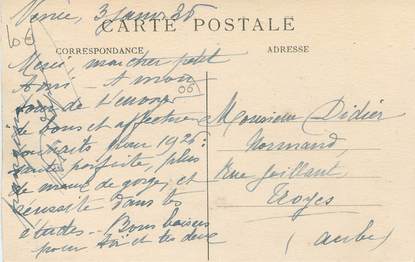 Vence, 3 janv 26
CARTE POSTALE
CORRESPONDANCE
ADRESSE
Merci, mon cher petit
Ami — A mon
tour de t'envoyer
de bons et affectueux
souhaits pour 1926 :
santé parfaite, plus
de maux de gorge, et
réussite dans tes
études — Bons baisers
pour toi et tes deux
Monsieur Didier
Normand,
Rue Gaillard
Troyes
(Aube)
06